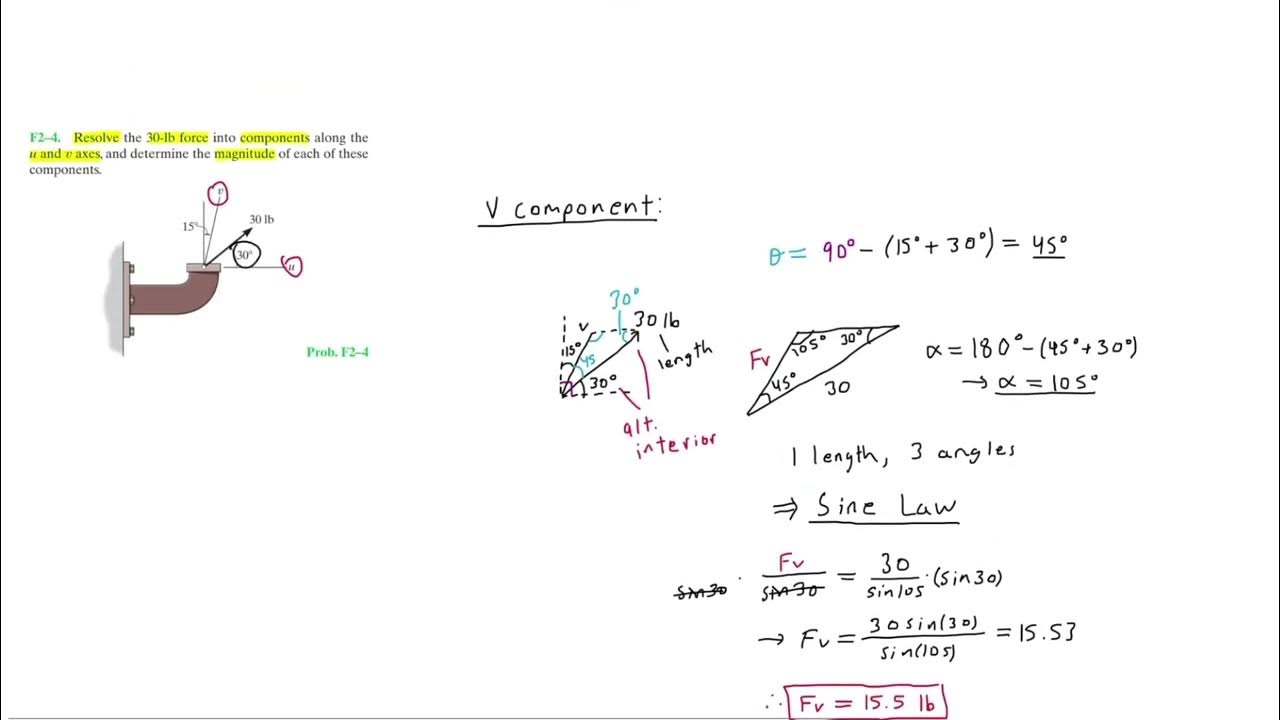 F2–4. Resolve the 30-lb force into components along the
u and v axes, and determine the magnitude of each of these
components.
v
15°
30 lb
30°
u
Prob. F2–4
V component:
θ = 90° - (15° + 30°) = 45°
30°
v
30 lb
15°
45
30°
length
alt.
interior
Fv
105°
30°
45°
30
α = 180° - (45° + 30°)
→ α = 105°
1 length, 3 angles
⇒ Sine Law
sin30 · Fv/sin30 = 30/sin105 · (sin30)
→ Fv = 30sin(30)/sin(105) = 15.53
∴ Fv = 15.5 lb